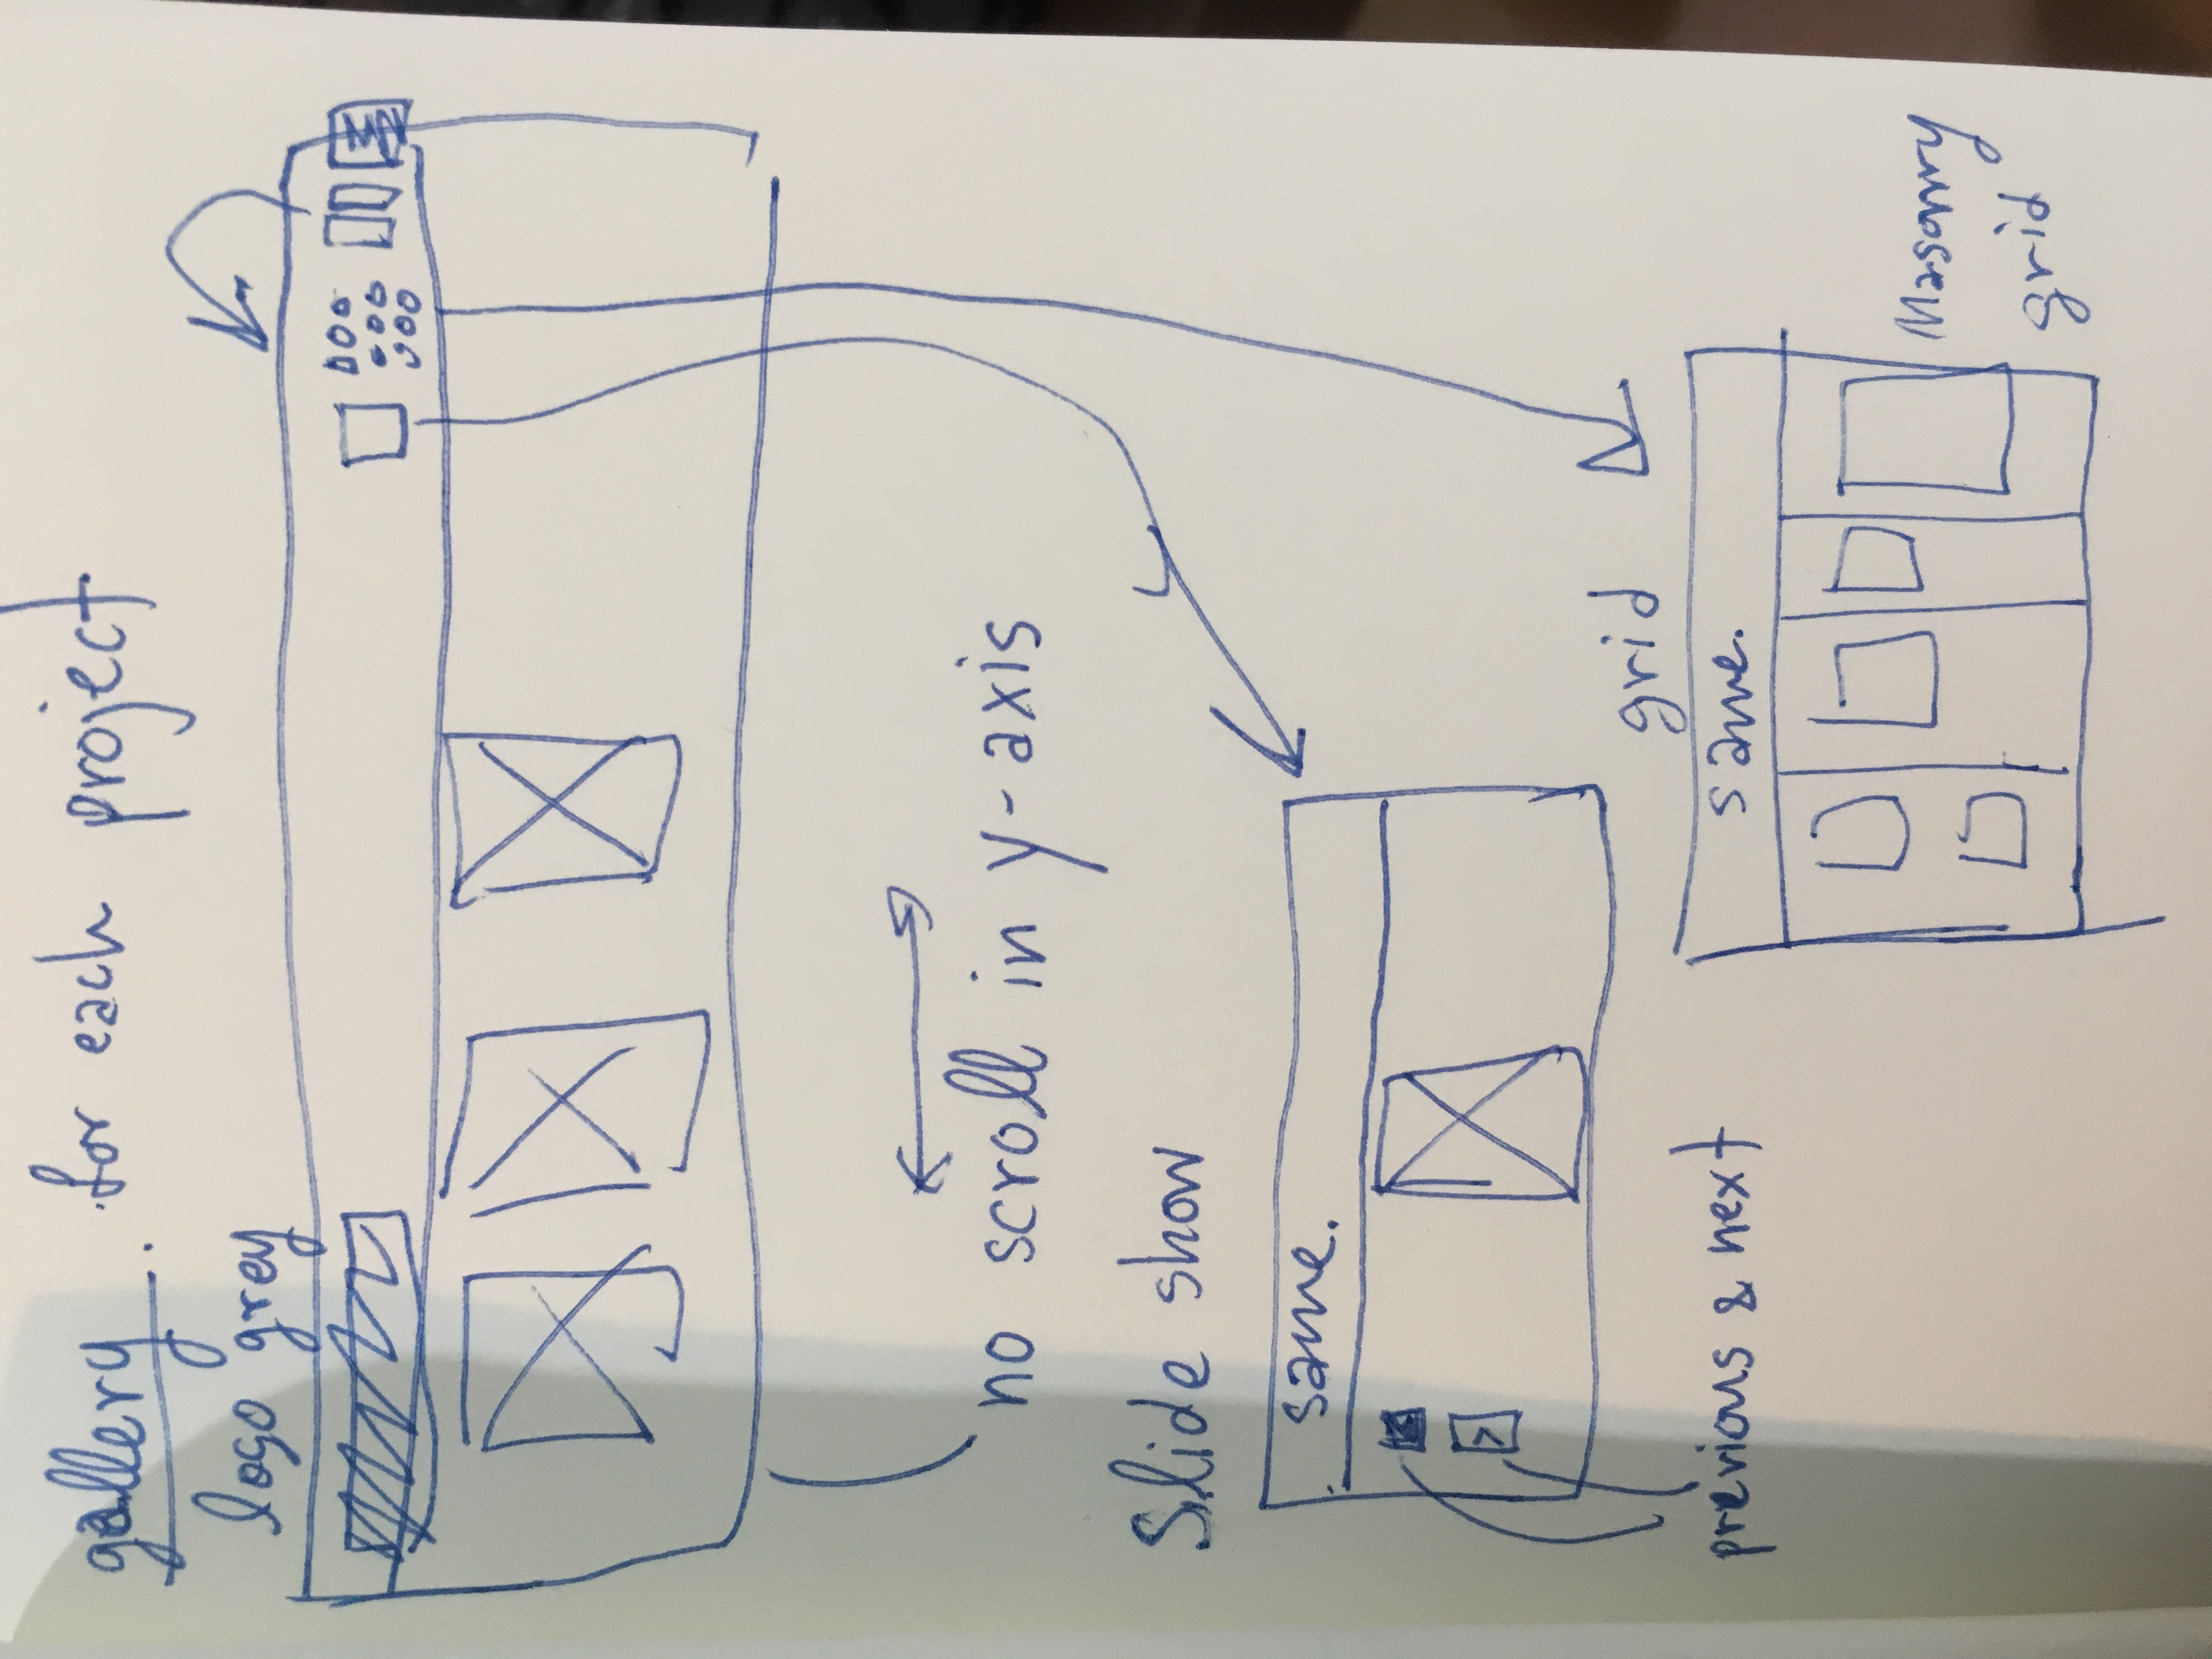 gallery. for each project
logo grey
no scroll in y-axis
Slide show
same.
<
>
previous & next
grid
same.
Masonry
grid